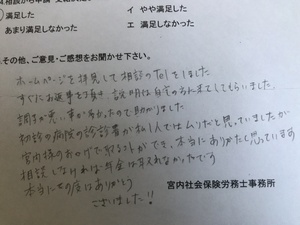 .相談から申請
満足した イ やや満足した
あまり満足しなかった エ 満足しなかった
.その他、ご意見・ご感想をお聞かせ下さい。
ホームページを拝見して相談のTelをしました
すぐにお返事を頂き、説明は自宅の方に来てしてもらいました。
調子が悪い事があったので助かりました
初診の病院の診断書が私1人ではムリだと思っていましたが
宮内様のおかげで取ることができ、本当にありがたく思っています
相談しなければ年金は貰えなかったです
本当にその度はありがとう
ございました!!
宮内社会保険労務士事務所